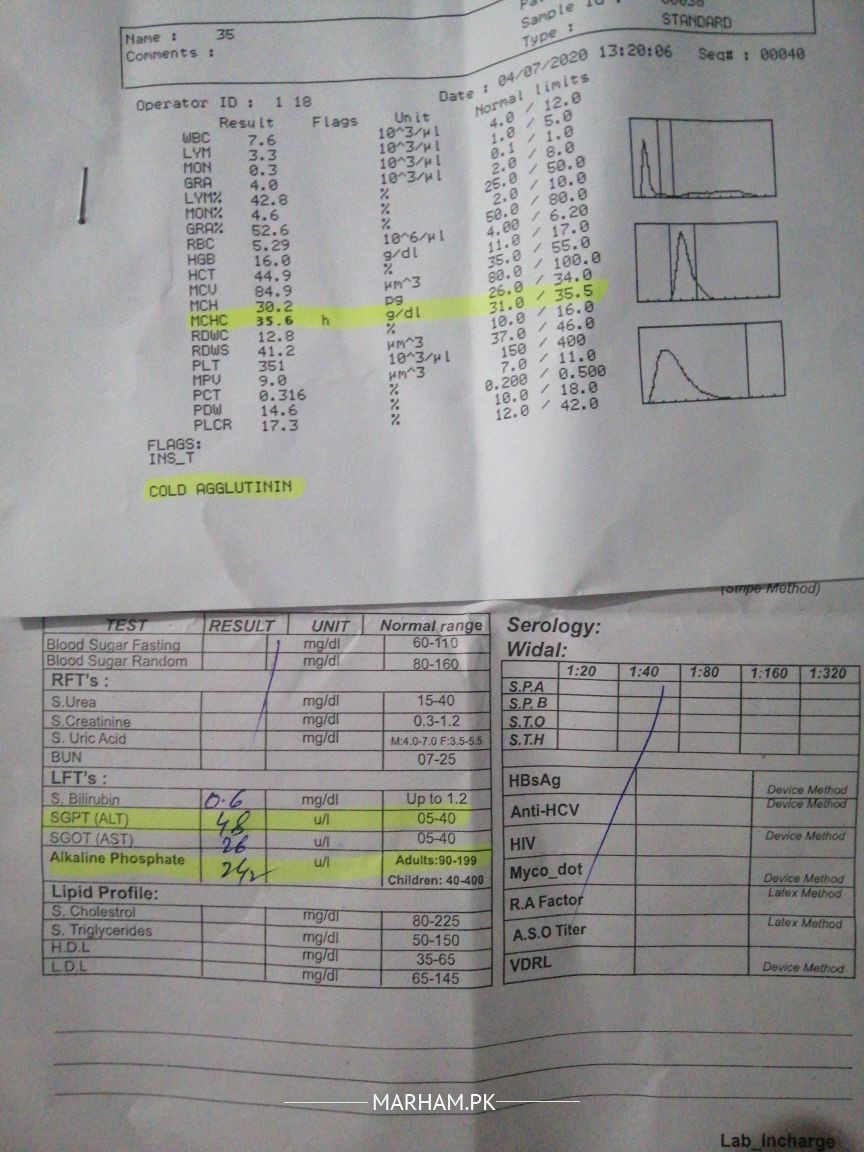 Sample Id :
00038
Name : 35
Type :
STANDARD
Comments :
Date : 04/07/2020 13:20:06 Seq# : 00040
Operator ID : 1 18
Result Flags Unit Normal limits
WBC 7.6 10^3/µl 4.0 / 12.0
LYM 3.3 10^3/µl 1.0 / 5.0
MON 0.3 10^3/µl 0.1 / 1.0
GRA 4.0 10^3/µl 2.0 / 8.0
LYM% 42.8 % 25.0 / 50.0
MON% 4.6 % 2.0 / 10.0
GRA% 52.6 % 50.0 / 80.0
RBC 5.29 10^6/µl 4.00 / 6.20
HGB 16.0 g/dl 11.0 / 17.0
HCT 44.9 % 35.0 / 55.0
MCV 84.9 µm^3 80.0 / 100.0
MCH 30.2 pg 26.0 / 34.0
MCHC 35.6 h g/dl 31.0 / 35.5
RDWC 12.8 % 10.0 / 16.0
RDWS 41.2 µm^3 37.0 / 46.0
PLT 351 10^3/µl 150 / 400
MPV 9.0 µm^3 7.0 / 11.0
PCT 0.316 % 0.200 / 0.500
PDW 14.6 % 10.0 / 18.0
PLCR 17.3 % 12.0 / 42.0
FLAGS:
INS_T
COLD AGGLUTININ
(Stripe Method)
TEST RESULT UNIT Normal range
Blood Sugar Fasting mg/dl 60-110
Blood Sugar Random mg/dl 80-160
RFT's :
S.Urea mg/dl 15-40
S.Creatinine mg/dl 0.3-1.2
S. Uric Acid mg/dl M:4.0-7.0 F:3.5-5.5
BUN 07-25
LFT's :
S. Bilirubin 0.6 mg/dl Up to 1.2
SGPT (ALT) 48 u/l 05-40
SGOT (AST) 26 u/l 05-40
Alkaline Phosphate 242 u/l Adults:90-199
Children: 40-400
Lipid Profile:
S. Cholestrol mg/dl 80-225
S. Triglycerides mg/dl 50-150
H.D.L mg/dl 35-65
L.D.L mg/dl 65-145
Serology:
Widal:
1:20 1:40 1:80 1:160 1:320
S.P.A
S.P.B
S.T.O
S.T.H
HBsAg Device Method
Anti-HCV Device Method
HIV Device Method
Myco_dot Device Method
R.A Factor Latex Method
A.S.O Titer Latex Method
VDRL Device Method
MARHAM.PK
Lab_Incharge